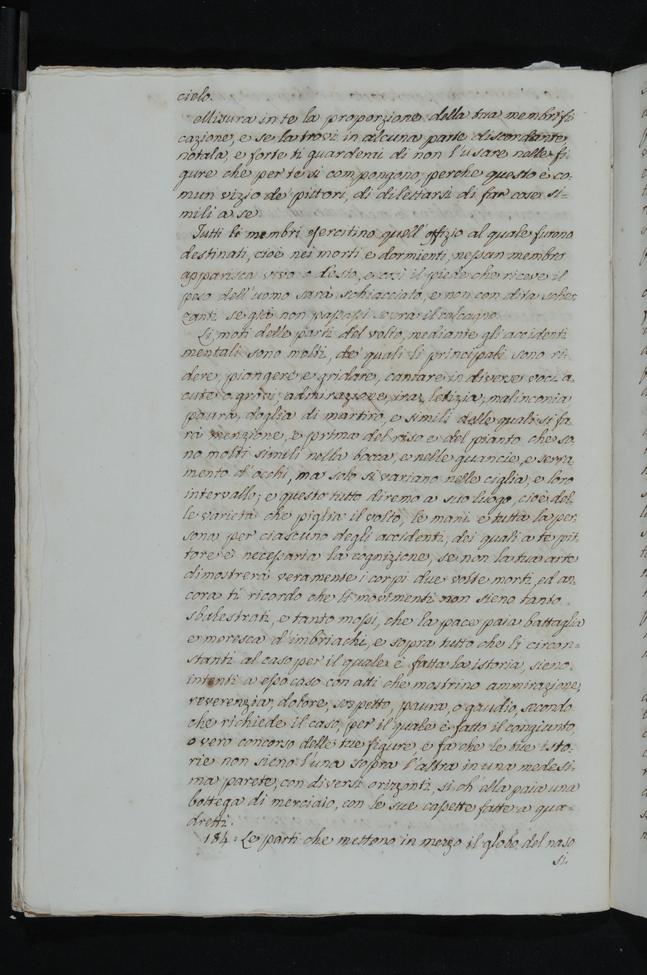 cielo.
Misura in te la proporzione della tua membrifi
cazione, e se la trovi in alcuna parte discordante
notala, e forte ti guarderai di non l'usare nelle fi
gure che per te si compongono, perche questo è co=
mun vizio de' pittori, di dilettarsi di far cose si=
mili a se.
Tutti li membri esercitino quell'offizio al quale furono
destinati, cioè nei morti e dormienti, nessun membro
apparisca vivo o desto, e così il piede che riceve il
peso dell'uomo sarà schiacciato, e non con dita scher
zanti se già non posassi sovra il calcagno.
Li moti delle parti del volto, mediante gli accidenti
mentali sono molti, de' quali li principali sono ri
dere, piangere e gridare, cantare in diverse voci a
cute o gravi, admirazione, ira, letizia, malinconia
paura, doglia di martiro, e simili delle quali si fa
rà menzione, e prima del riso e del pianto che so
no molti simili nella bocca, e nelle guancie, e serra
mento d'occhi, ma solo si variano nelle ciglia, e loro
intervallo; e questo tutto diremo a suo luogo, cioè del
le varietà che piglia il volto, le mani e tutta la per
sona per ciascuno degli accidenti, dei quali a te pit
tore è necessaria la cognizione, se non la tua arte
dimostrerà veramente i corpi due volte morti, ed an
cora ti ricordo che li movimenti non sieno tanto
sbalestrati, e tanto mossi, che la pace paia battaglia
e moresca d'imbriachi, e sopra tutto che li circon=
stanti al caso per il quale è fatta la istoria, sieno
intenti a esso caso con atti che mostrino ammirazione,
reverenzia, dolore, sospetto, paura, o gaudio, secondo
che richiede il caso, per il quale è fatto il congiunto,
o vero concorso delle tue figure, e fa che le tue isto=
rie non sieno l'una sopra l'altra in una medesi=
ma parete, con diversi orizzonti, si ch'alla paia una
bottega di merciaio, con le sue cassette fatte a qua=
dretti.
184. Le parti che mettono in mezzo il globo del naso
si